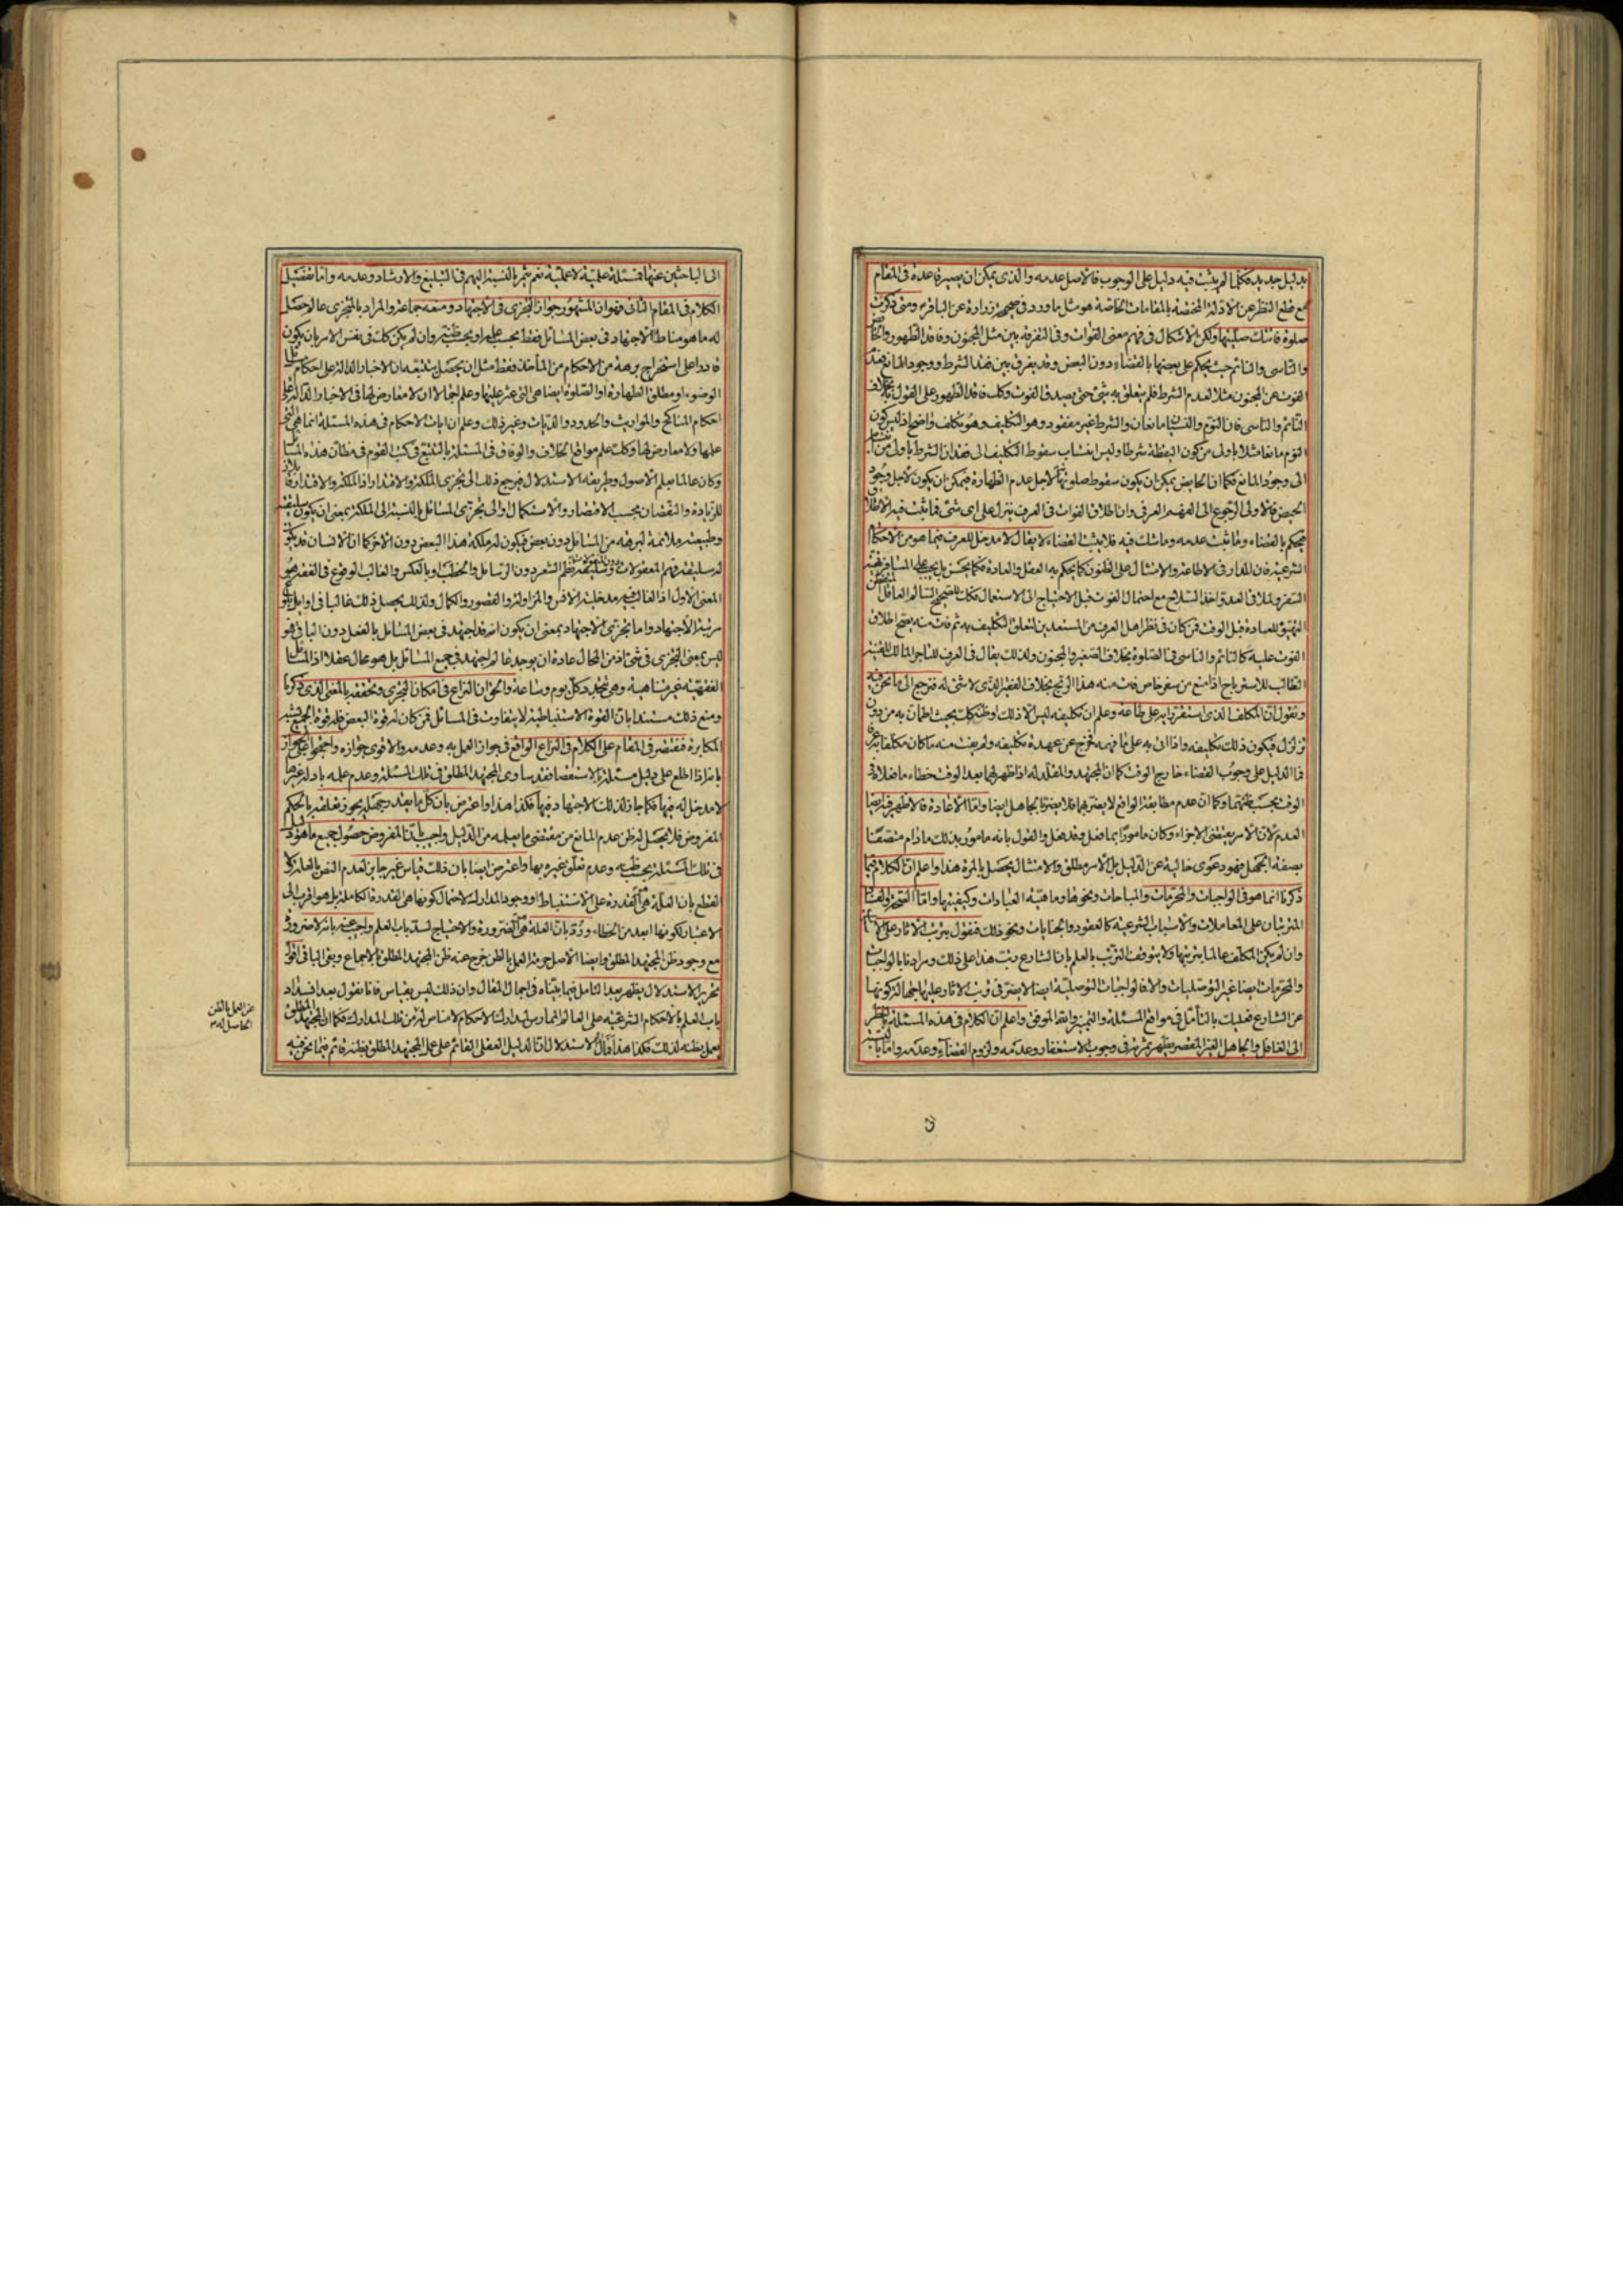 بدليل جديد فكلما لم يثبت فيه دليل على الوجوب فالاصل عدمه والذى يمكن ان يصير قاعدة فى المقام
مع قطع النظر عن الادلة المختصة بالمقامات الخاصة هو مثل ما ورد فى صحيحة زرارة عن الباقر ومتى ذكرت
صلوة فاتتك صليتها ولكن الاشكال فى فهم معنى الفوات وفى التفرقة بين مثل المجنون وفاقد الطهور والحائض
والناسى والنائم حيث يحكم على بعضها بالقضاء دون البعض وقد يفرق بين فقد الشرط ووجود المانع فعند
الفوت عن المجنون مثلا لعدم الشرط فلم يتعلق به شئ حتى يصدق الفوت وكك فاقد الطهور على القول به بخلاف
النائم والناسى فان النوم والنسيان مانعان والشرط غير مفقود وهو التكليف وهو تكلف واضح اذ ليس كون
النوم مانعا مثلا باولى من كون اليقظة شرطا وليس انتساب سقوط التكليف الى فقدان الشرط باولى من
الى وجود المانع فكما ان الحايض يمكن ان يكون سقوط صلوتها لاجل عدم الطهارة فيمكن ان يكون لاجل وجود
الحيض فالاولى الرجوع الى الفهم العرفى وان اطلاق الفوات فى العرف ينزل على اى شئ فما يثبت فيه الاطلاق
فيحكم بالقضاء وما ثبت عدمه وما شك فيه فلا يثبت القضاء لا يقال لا مدخل للعرف فيما هو من الاحكام
الشرعية فان المدار فى الاطاعة والامتثال على الظنون كما يحكم به العقل والعادة فكما يحسن بل يجب على المسافر تهيئة
السفر ولملاقى العدو اخذ السلاح مع احتمال الفوت قبل الاحتياج الى الاستعمال فكك للصحيح السالم العاقل
التهيؤ للعبادة قبل الوقت فمن كان فى نظر اهل العرف من المستعدين لتعلق التكليف به ثم فات منه يصح اطلاق
الفوت عليه كالنائم والناسى فى الصلوة بخلاف الصغير والمجنون ولذلك يقال فى العرف للتاجر المالك للبضيعة
الطالب للاسترباح اذا منع من سفر خاص فات منه هذا الربح بخلاف الفقير الذى لا شئ له فنرجع الى ما نحن فيه
ونقول ان المكلف الذى استقر رايه على طاعة وعلم ان تكليفه ليس الا ذلك او ظن كك بحيث اطمأن به من دون
تزلزل فيكون ذلك تكليفه واذا اتى به على ما فهمه فخرج عن عهدة تكليفه ولم يفت منه ما كان مكلفا به عرفا
فما الدليل على وجوب القضاء خارج الوقت كما ان المجتهد والمقلد له اذا ظهر لهما بعد الوقت خطاء ما فعلا فى
الوقت بحسب ظنهما وكما ان عدم مطابقة الواقع لا يضر بهما فلا يضر بالجاهل ايضا واما الاعادة فالاظهر فيه ايضا
العدم لان الامر يقتضى الاجزاء وكان مامورا بما فعل وقد فعل والقول بانه مامور بذلك ما دام متصفا
بصفة الجهل فهو دعوى خالية عن الدليل بل الامر مطلق والامتثال يحصل بالمرة هذا واعلم ان الكلام فيما
ذكرنا انما هو فى الواجبات والمحرمات والمباحات ونحوها وماهية العبادات وكيفيتها واما الصحة والفساد
المترتبان على المعاملات والاسباب الشرعية كالعقود والجنايات ونحو ذلك فنقول بترتب الاثار على الاسباب
وان لم يكن المكلف عالما بترتبها ولا يتوقف الترتب بالعلم بان الشارع رتب هذا على ذلك ومرادنا بالواجبات
والمحرمات ايضا غير التوصليات والا فالواجبات التوصلية ايضا لا يضر فى ترتب الاثار عليها جهالة كونها
عن الشارع فعليك بالتأمل فى مواقع المسئلة والتميز والله الموفق واعلم ان الكلام فى هذه المسئلة بالنظر
الى الغافل والجاهل الغير المقصر يظهر ثمرته فى وجوب الاستغفار وعدمه ولزوم القضاء وعدمه واما بالنسبة
الى الباحثين عنها فمسئلة علمية لا عملية نعم يثمر بالنسبة اليهم فى التبليغ والارشاد وعدمه واما تفصيل
الكلام فى المقام الثانى فهو ان المشهور جواز التجزى فى الاجتهاد ومنعه جماعة والمراد بالمتجزى عالم حصل
له ما هو مناط الاجتهاد فى بعض المسائل فقط بحسب علمه او بحسب ظنه وان لم يكن كك فى نفس الامر بان يكون
قادرا على استخراج برهة من الاحكام من المأخذ فقط مثل ان يحصل بتتبعه ان الاخبار الدالة على احكام
الوضوء او مطلق الطهارة او الصلوة ايضا هى التى عثر عليها وعلم اجمالا ان لا معارض لها فى الاخبار الدالة على
احكام المناكح والمواريث والحدود والديات وغير ذلك وعلم ان ايات الاحكام فى هذه المسئلة انما هى التى
علمها ولا معارض لها وكك علم مواقع الخلاف والوفاق فى المسئلة بالتتبع فى كتب القوم فى مظان هذه المسائل
وكان عالما بعلم الاصول وطريقة الاستدلال فيرجع ذلك الى تجزى الملكة والاقتدار اذ الملكة والاقتدار قابلان
للزيادة والنقصان بحسب الاقتصار والاستكمال والى تجزى المسائل بالنسبة الى الملكة بمعنى ان يكون سليقته
وطبيعته ملائمة لبرهة من المسائل دون بعض فيكون له ملكة هذا البعض دون الاخر كما ان الانسان قد يكون
له سليقة فهم المعقولات وسليقة نظم الشعر دون الرسايل والخطب وبالعكس والغالب الوقوع فى الفقه هو
المعنى الاول اذ الغالب فيه مدخلية الانس والمزاولة والقصور والكمال ولذلك يحصل ذلك غالبا فى اوايل بلوغ
مرتبة الاجتهاد واما تجزى الاجتهاد بمعنى ان يكون انه قد اجتهد فى بعض المسائل بالفعل دون الباقى فهو
ليس بمعنى التجزى فى شئ اذ من المحال عادة ان يوجد عالم اجتهد فى جميع المسائل بل هو محال عقلا اذ المسائل
الفقهية غير متناهية وهى تتجدد كل يوم وساعة والحق ان النزاع فى امكان التجزى وتحققه بالمعنى الذى ذكرنا
ومنع ذلك مستندا بان القوة الاستنباطية لا يتفاوت فى المسائل فمن كان له قوة البعض فله قوة الجميع يشبه
المكابرة فنقتصر فى المقام على الكلام فى النزاع الواقع فى جواز العمل به وعدمه والاقوى جوازه واحتجوا على الجواز
بانه اذا اطلع على دليل مسئلة بالاستقصاء فقد ساوى المجتهد المطلق فى تلك المسئلة وعدم علمه بادلة غيرها
لا مدخل له فيها فكما جاز لذلك الاجتهاد فيها فكذا هذا واعترض بان كل ما يقدر جهله يجوز تعلقه بالحكم
المفروض فلا يحصل له ظن عدم المانع من مقتضى ما يعلمه من الدليل واجيب بان المفروض حصول جميع ما هو دليل
فى تلك المسئلة بحسب ظنه وعدم تعلق غيره بها واعترض ايضا بان ذلك قياس غير جايز لعدم النص بالعلة ولا
القطع بان العلة هى القدرة على الاستنباط او وجود المدارك لاحتمال كونها هى القدرة الكاملة بل هو اقرب الى
الاعتبار لكونها ابعد من الخطاء ورد بان العلة هى الضرورة والاحتياج لسد باب العلم واجيب عنه بانه لا ضرورة
مع وجود ظن المجتهد المطلق وايضا الاصل حرمة العمل بالظن خرج عنه ظن المجتهد المطلق بالاجماع وبقى الباقى اقول
تحرير الاستدلال يظهر بعد التامل فيما بيناه فى اجمال المقال وان ذلك ليس بقياس فانا نقول بعد انسداد
باب العلم بالاحكام الشرعية على العالم الممارس لمدارك الاحكام لا مناص له من تلك المدارك فكما ان المجتهد المطلق
يعمل بظنه لذلك فكذا هذا مآل الاستدلال ان الدليل العقلى القائم على عمل المجتهد المطلق بظنه قائم فيما نحن فيه
عن العمل بالظن
الحاصل له